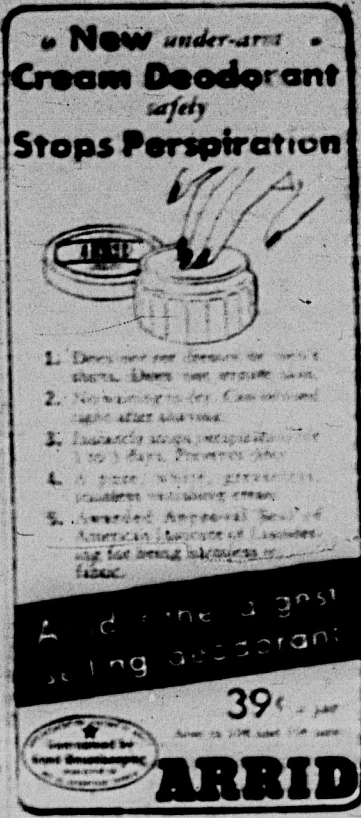 New under-arm
Cream Deodorant
safely
Stops Perspiration
ARRID
1. Does not rot dresses or men's
shirts. Does not irritate skin.
2. No waiting to dry. Can be used
right after shaving.
3. Instantly stops perspiration for
1 to 3 days. Prevents odor.
4. A pure, white, greaseless,
stainless vanishing cream.
5. Awarded Approval Seal of
American Institute of Launder-
ing for being harmless to
fabric.
Arrid is the largest
selling deodorant
39¢ a jar
ARRID